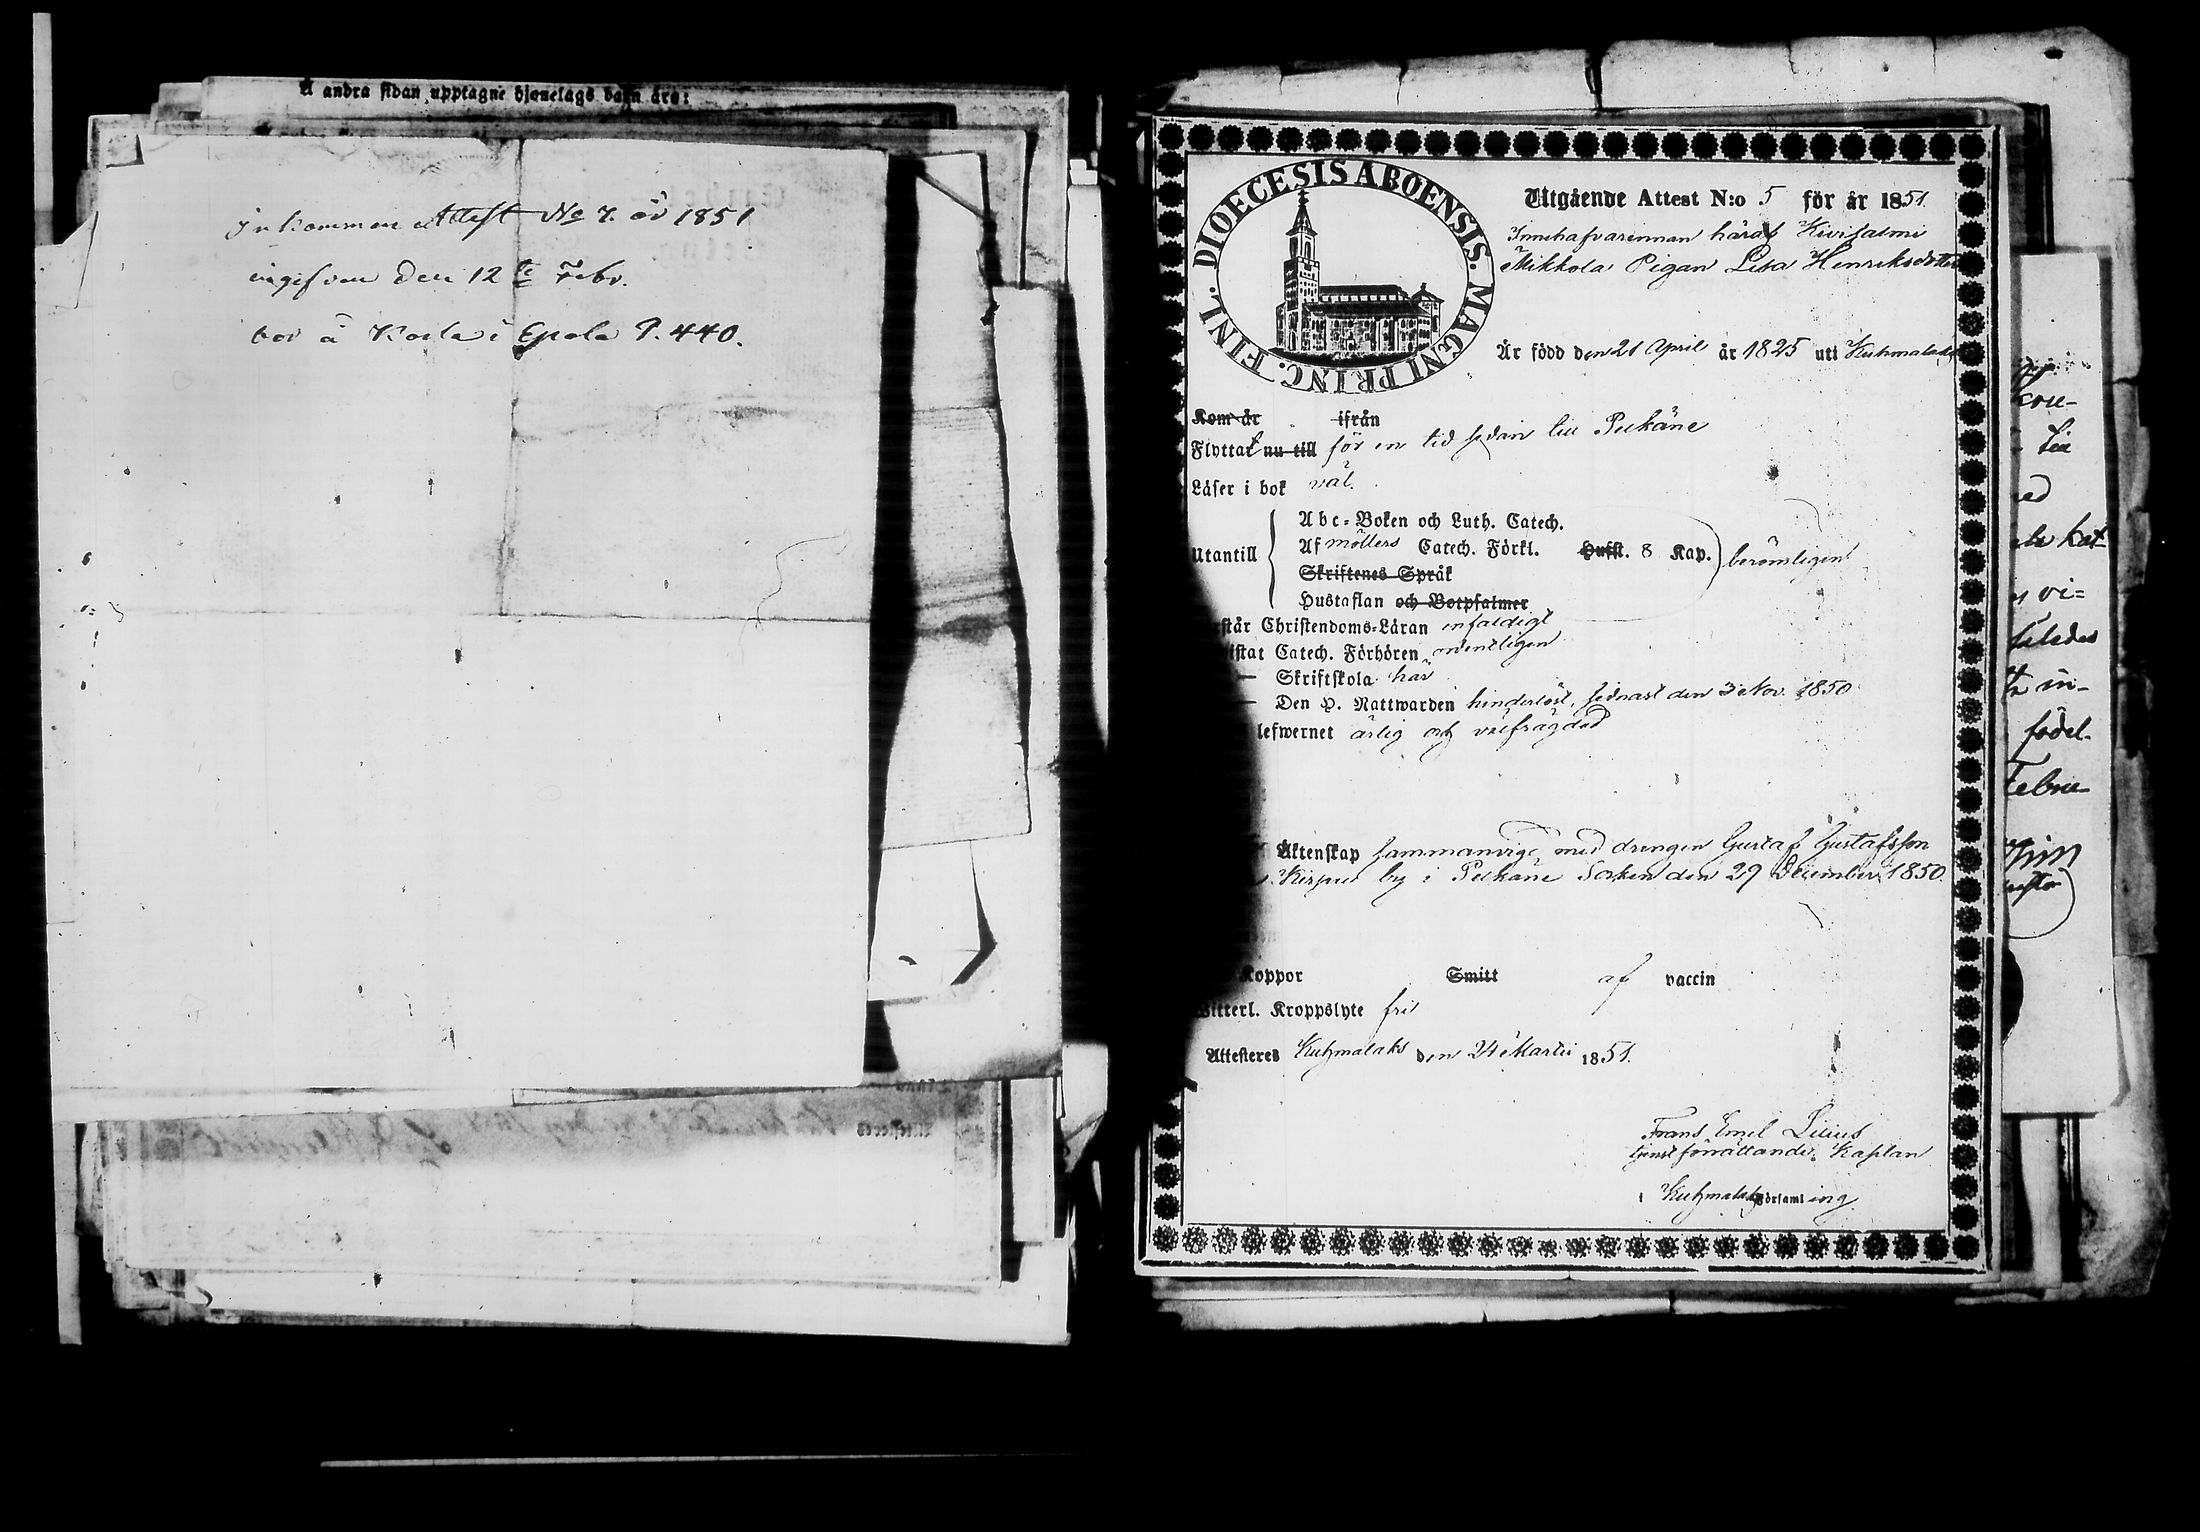 Å andra sidan upptagne hjonelags barn äro:
Inkommen Attest No 7. år 1851
ingifven den 12te Febr.
bor å Korla i Epola P. 440.
DIOECESIS ABOENSIS. MAGNI PRINC. FINL.
Utgående Attest N:o 5 för år 1851
Innehafvarinnan häraf Kivisalmi
Mikkola Pigan Lisa Henriksdotter
Är född den 21 April år 1825 uti Kuhmalaks
Kom år ifrån
Flyttat nu till för en tid sedan till Pelkäne
Läser i bok väl.
Utantill
Abc-Boken och Luth. Catech.
Af möllers Catech. Förkl. Husst. 8 Kap. berömligen
Skriftenes Språk
Hustaflan och Botpsalmer
står Christendoms-Läran enfaldigt
istat Catech. Förhören ordentligen
— Skriftskola här
— Den H. Nattwarden hinderlöst, sednast den 3 Nov. 1850
lefwernet ärlig och välfrägdad
Äktenskap sammanvigd med drengen Gustaf Gustafsson
Kirpu by i Pelkäne Socken den 29 December 1850.
Koppor Smitt af vaccin
Witterl. Kroppslyte fri
Attesteres Kuhmalaks den 24 Martii 1851.
Frans Emil Lilius
tjenstförrättande Kaplan
i Kuhmalaks Församling
kou-
ed
vi-
ledes
in-
födel-
Febru-